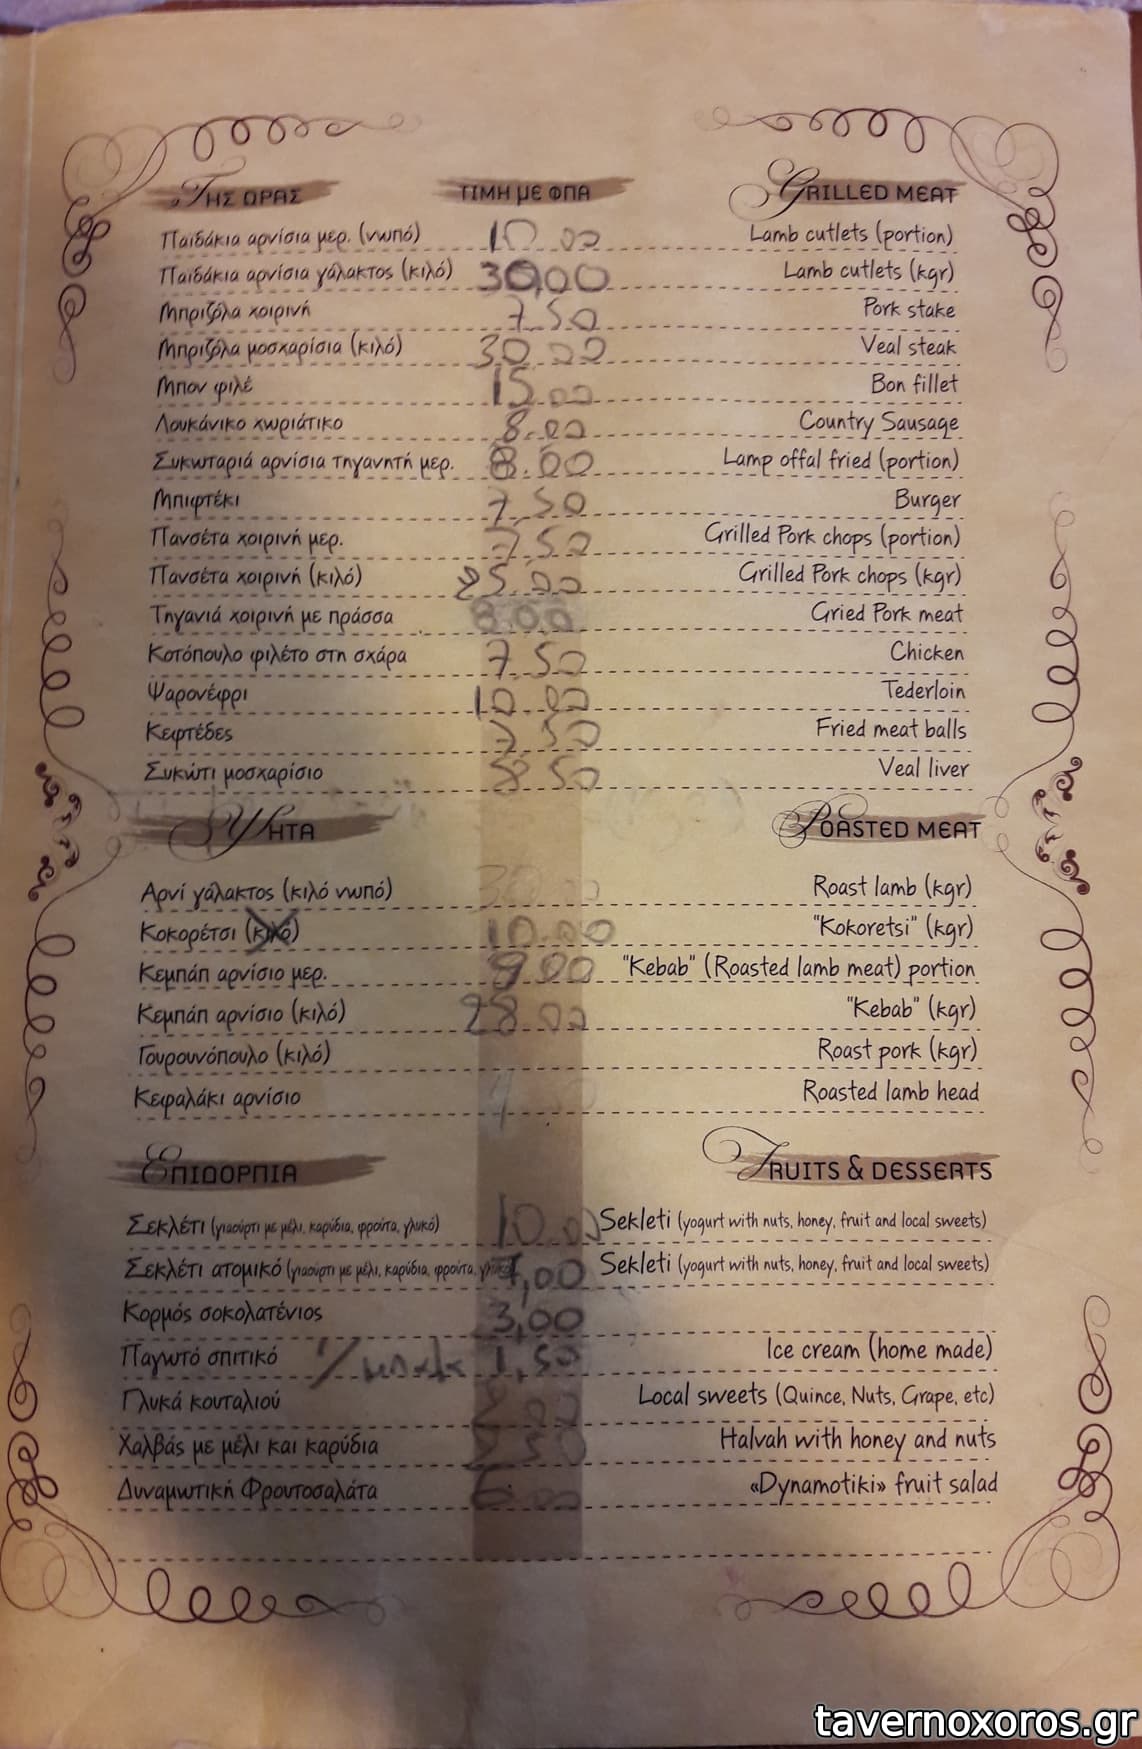 Της ωρας ΤΙΜΗ με ΦΠΑ Grilled meat
Παϊδάκια αρνίσια μερ. (νωπό) 10.00 Lamb cutlets (portion)
Παϊδάκια αρνίσια γάλακτος (κιλό) 30,00 Lamb cutlets (kgr)
Μπριζόλα χοιρινή 7.50 Pork stake
Μπριζόλα μοσχαρίσια (κιλό) 30.00 Veal steak
Μπον φιλέ 15.00 Bon fillet
Λουκάνικο χωριάτικο 8.00 Country Sausage
Συκωταριά αρνίσια τηγανητή μερ. 8.00 Lamp offal fried (portion)
Μπιφτέκι 7.50 Burger
Πανσέτα χοιρινή μερ. 7.50 Grilled Pork chops (portion)
Πανσέτα χοιρινή (κιλό) 25.00 Grilled Pork chops (kgr)
Τηγανιά χοιρινή με πράσσα 8.00 Gried Pork meat
Κοτόπουλο φιλέτο στη σχάρα 7.50 Chicken
Ψαρονέφρι 10.00 Tederloin
Κεφτέδες 7.50 Fried meat balls
Συκώτι μοσχαρίσιο 8.50 Veal liver
Ψητα Roasted meat
Αρνί γάλακτος (κιλό νωπό) 30.00 Roast lamb (kgr)
Κοκορέτσι (κιλό) 10.00 "Kokoretsi" (kgr)
Κεμπάπ αρνίσιο μερ. 9.00 "Kebab" (Roasted lamb meat) portion
Κεμπάπ αρνίσιο (κιλό) 28.00 "Kebab" (kgr)
Γουρουνόπουλο (κιλό) Roast pork (kgr)
Κεφαλάκι αρνίσιο Roasted lamb head
Επιδορπια Fruits & desserts
Σεκλέτι (γιαούρτι με μέλι, καρύδια, φρούτα, γλυκό) 10.00 Sekleti (yogurt with nuts, honey, fruit and local sweets)
Σεκλέτι ατομικό (γιαούρτι με μέλι, καρύδια, φρούτα, γλυκό) 4,00 Sekleti (yogurt with nuts, honey, fruit and local sweets)
Κορμός σοκολατένιος 3,00
Παγωτό σπιτικό 1/μπάλα 1,50 Ice cream (home made)
Γλυκά κουταλιού 2.00 Local sweets (Quince, Nuts, Grape, etc)
Χαλβάς με μέλι και καρύδια Halvah with honey and nuts
Δυναμωτική Φρουτοσαλάτα 6.00 «Dynamotiki» fruit salad
tavernoxoros.gr